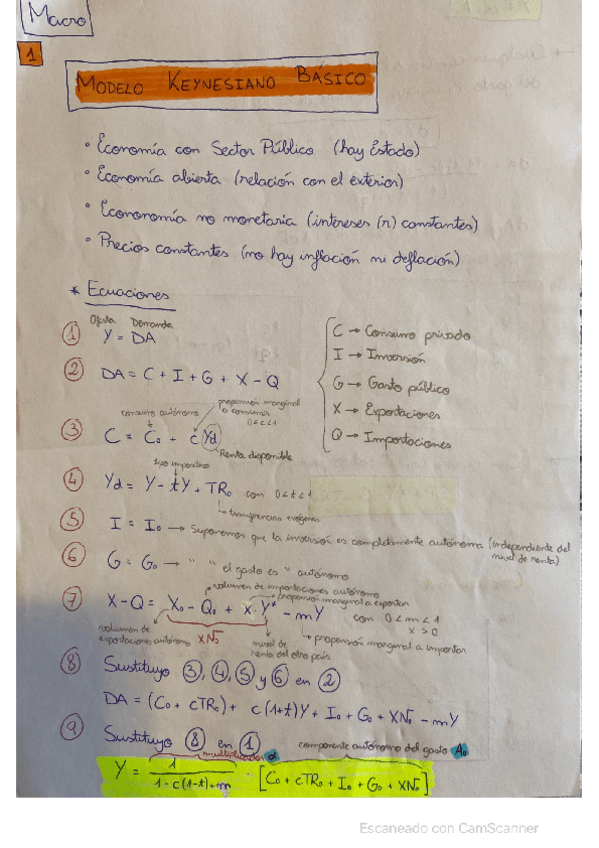 Macro
1
MODELO KEYNESIANO BÁSICO
• Economía con Sector Público (hay Estado)
• Economía abierta (relación con el exterior)
• Econonomía no monetaria (intereses (r) constantes)
• Precios constantes (no hay inflación ni deflación)
* Ecuaciones
Oferta Demanda
① Y = DA
② DA = C + I + G + X - Q
C → Consumo privado
I → Inversión
G → Gasto público
X → Exportaciones
Q → Importaciones
consumo autónomo
propensión marginal a consumir
0<c<1
③ C = C₀ + c Yd
Renta disponible
tipo impositivo
④ Yd = Y - tY + TR₀ con 0<t<1
transferencias exógenas
⑤ I = I₀ → Suponemos que la inversión es completamente autónoma (independiente del nivel de renta)
⑥ G = G₀ → " " el gasto es " autónomo
volumen de importaciones autónomo
propensión marginal a exportar
⑦ X-Q = X₀ - Q₀ + x·Y* - mY con 0<m<1
x>0
volumen de exportaciones autónomo
XN₀
nivel de renta del otro país
propensión marginal a importar
⑧ Sustituyo ③, ④, ⑤ y ⑥ en ②
DA = (C₀ + cTR₀) + c(1+t)Y + I₀ + G₀ + XN₀ - mY
⑨ Sustituyo ⑧ en ①
multiplicador α
componente autónomo del gasto A₀
Y = 1 / 1-c(1-t)+m · [C₀ + cTR₀ + I₀ + G₀ + XN₀]
Escaneado con CamScanner